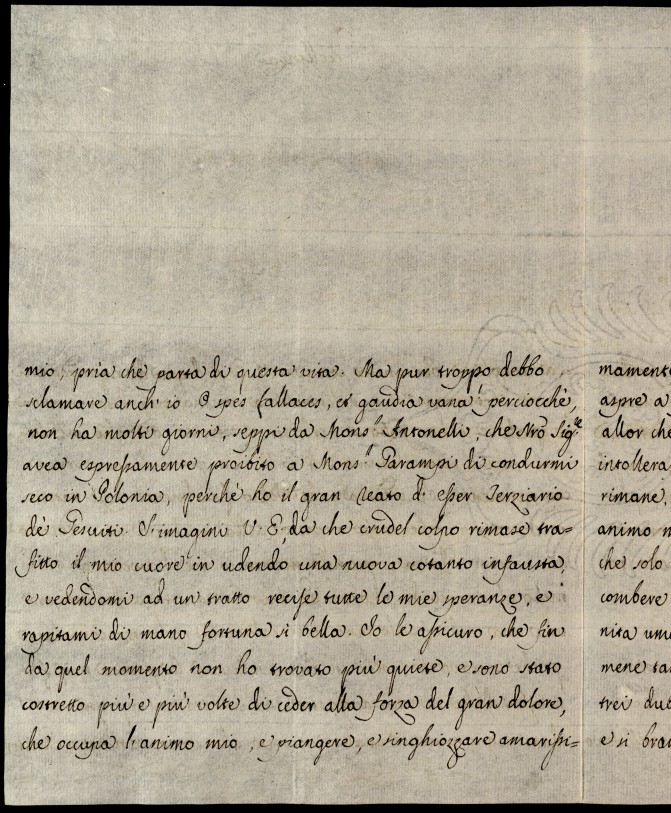 mio, pria che parta di questa vita. Ma pur troppo debbo
sclamare anch'io O spes fallaces, et gaudia vana! perciocchè,
non ha molti giorni, seppi da Mons.r Antonelli, che Nrõ Sig.re
avea espressamente proibito a Mons.r Garampi di condurmi
seco in Polonia, perchè ho il gran reato d'esser Terziario
de' Gesuiti. S'imagini V. E., da che crudel colpo rimase tra=
fitto il mio cuore in udendo una nuova cotanto infausta,
e vedendomi ad un tratto recise tutte le mie speranze, e
rapitami di mano fortuna sì bella. Io le assicuro, che fin
da quel momento non ho trovato più quiete, e sono stato
costretto più e più volte di ceder alla forza del gran dolore,
che occupa l'animo mio, e piangere, e singhiozzare amarissi=
mamente
aspre a
allor che
intollera
rimane,
animo m
che solo
combere
nita uma
mene ta
trei dub
e si brac